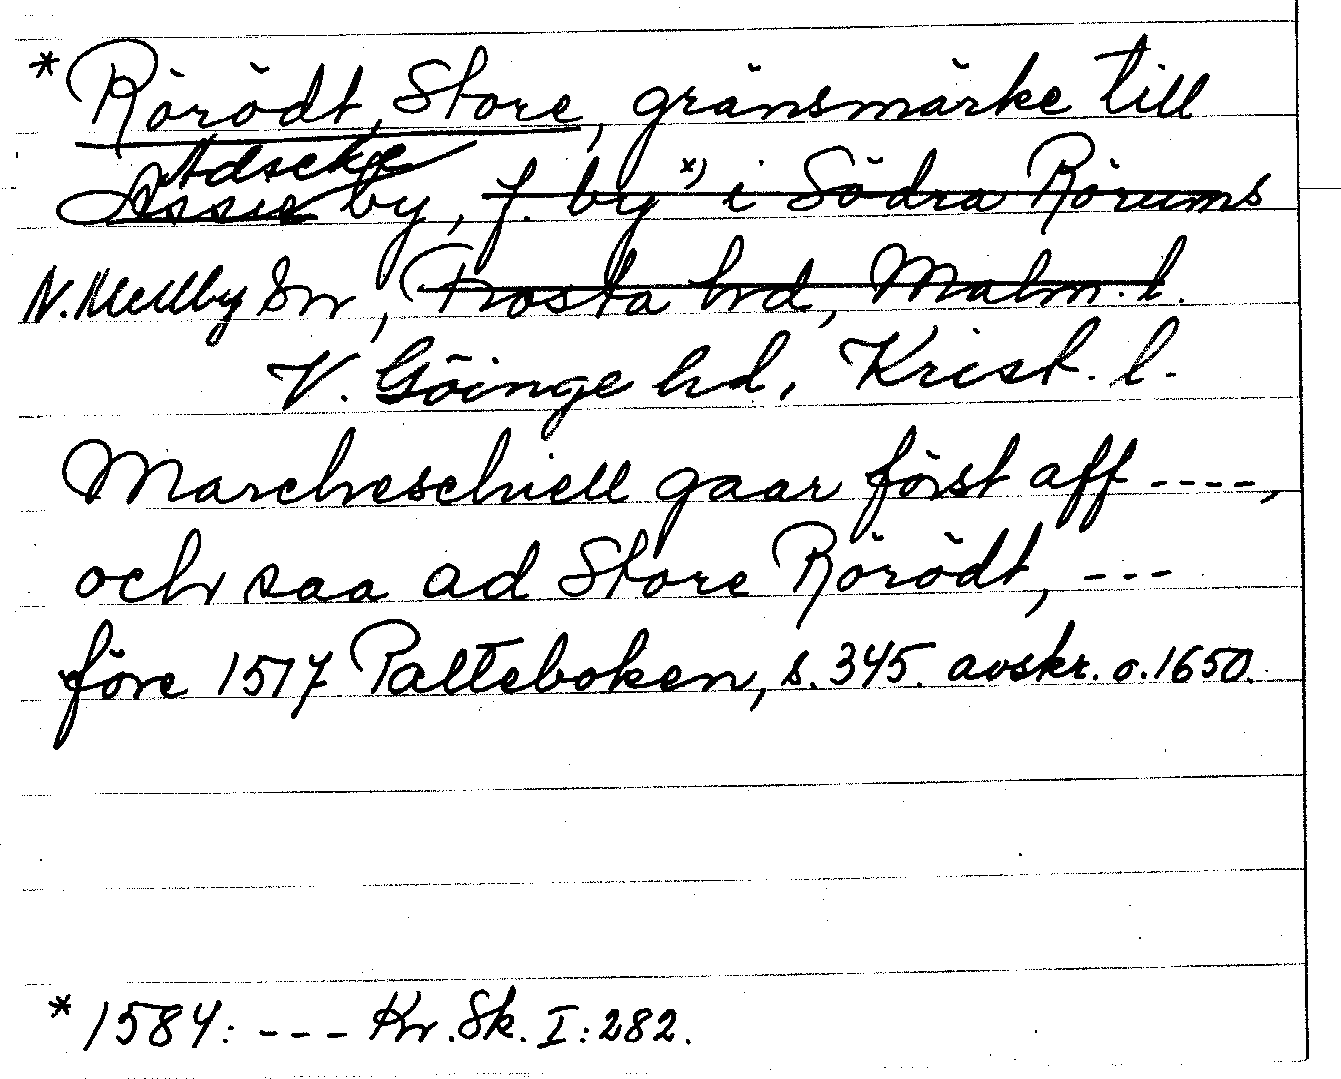 * Rörödt, Store, gränsmärke till
Adseke
Assie by, f. by *) i Södra Rörums
N. Mellby Sn, Frosta hd, Malm. l.
V. Göinge hd, Krist. l.
Marcheschiell gaar först aff ----,
och saa ad Store Rörödt, ---
före 1517 Palteboken, s. 345. avskr. o. 1650.
* 1584: --- Kr. Sk. I: 282.